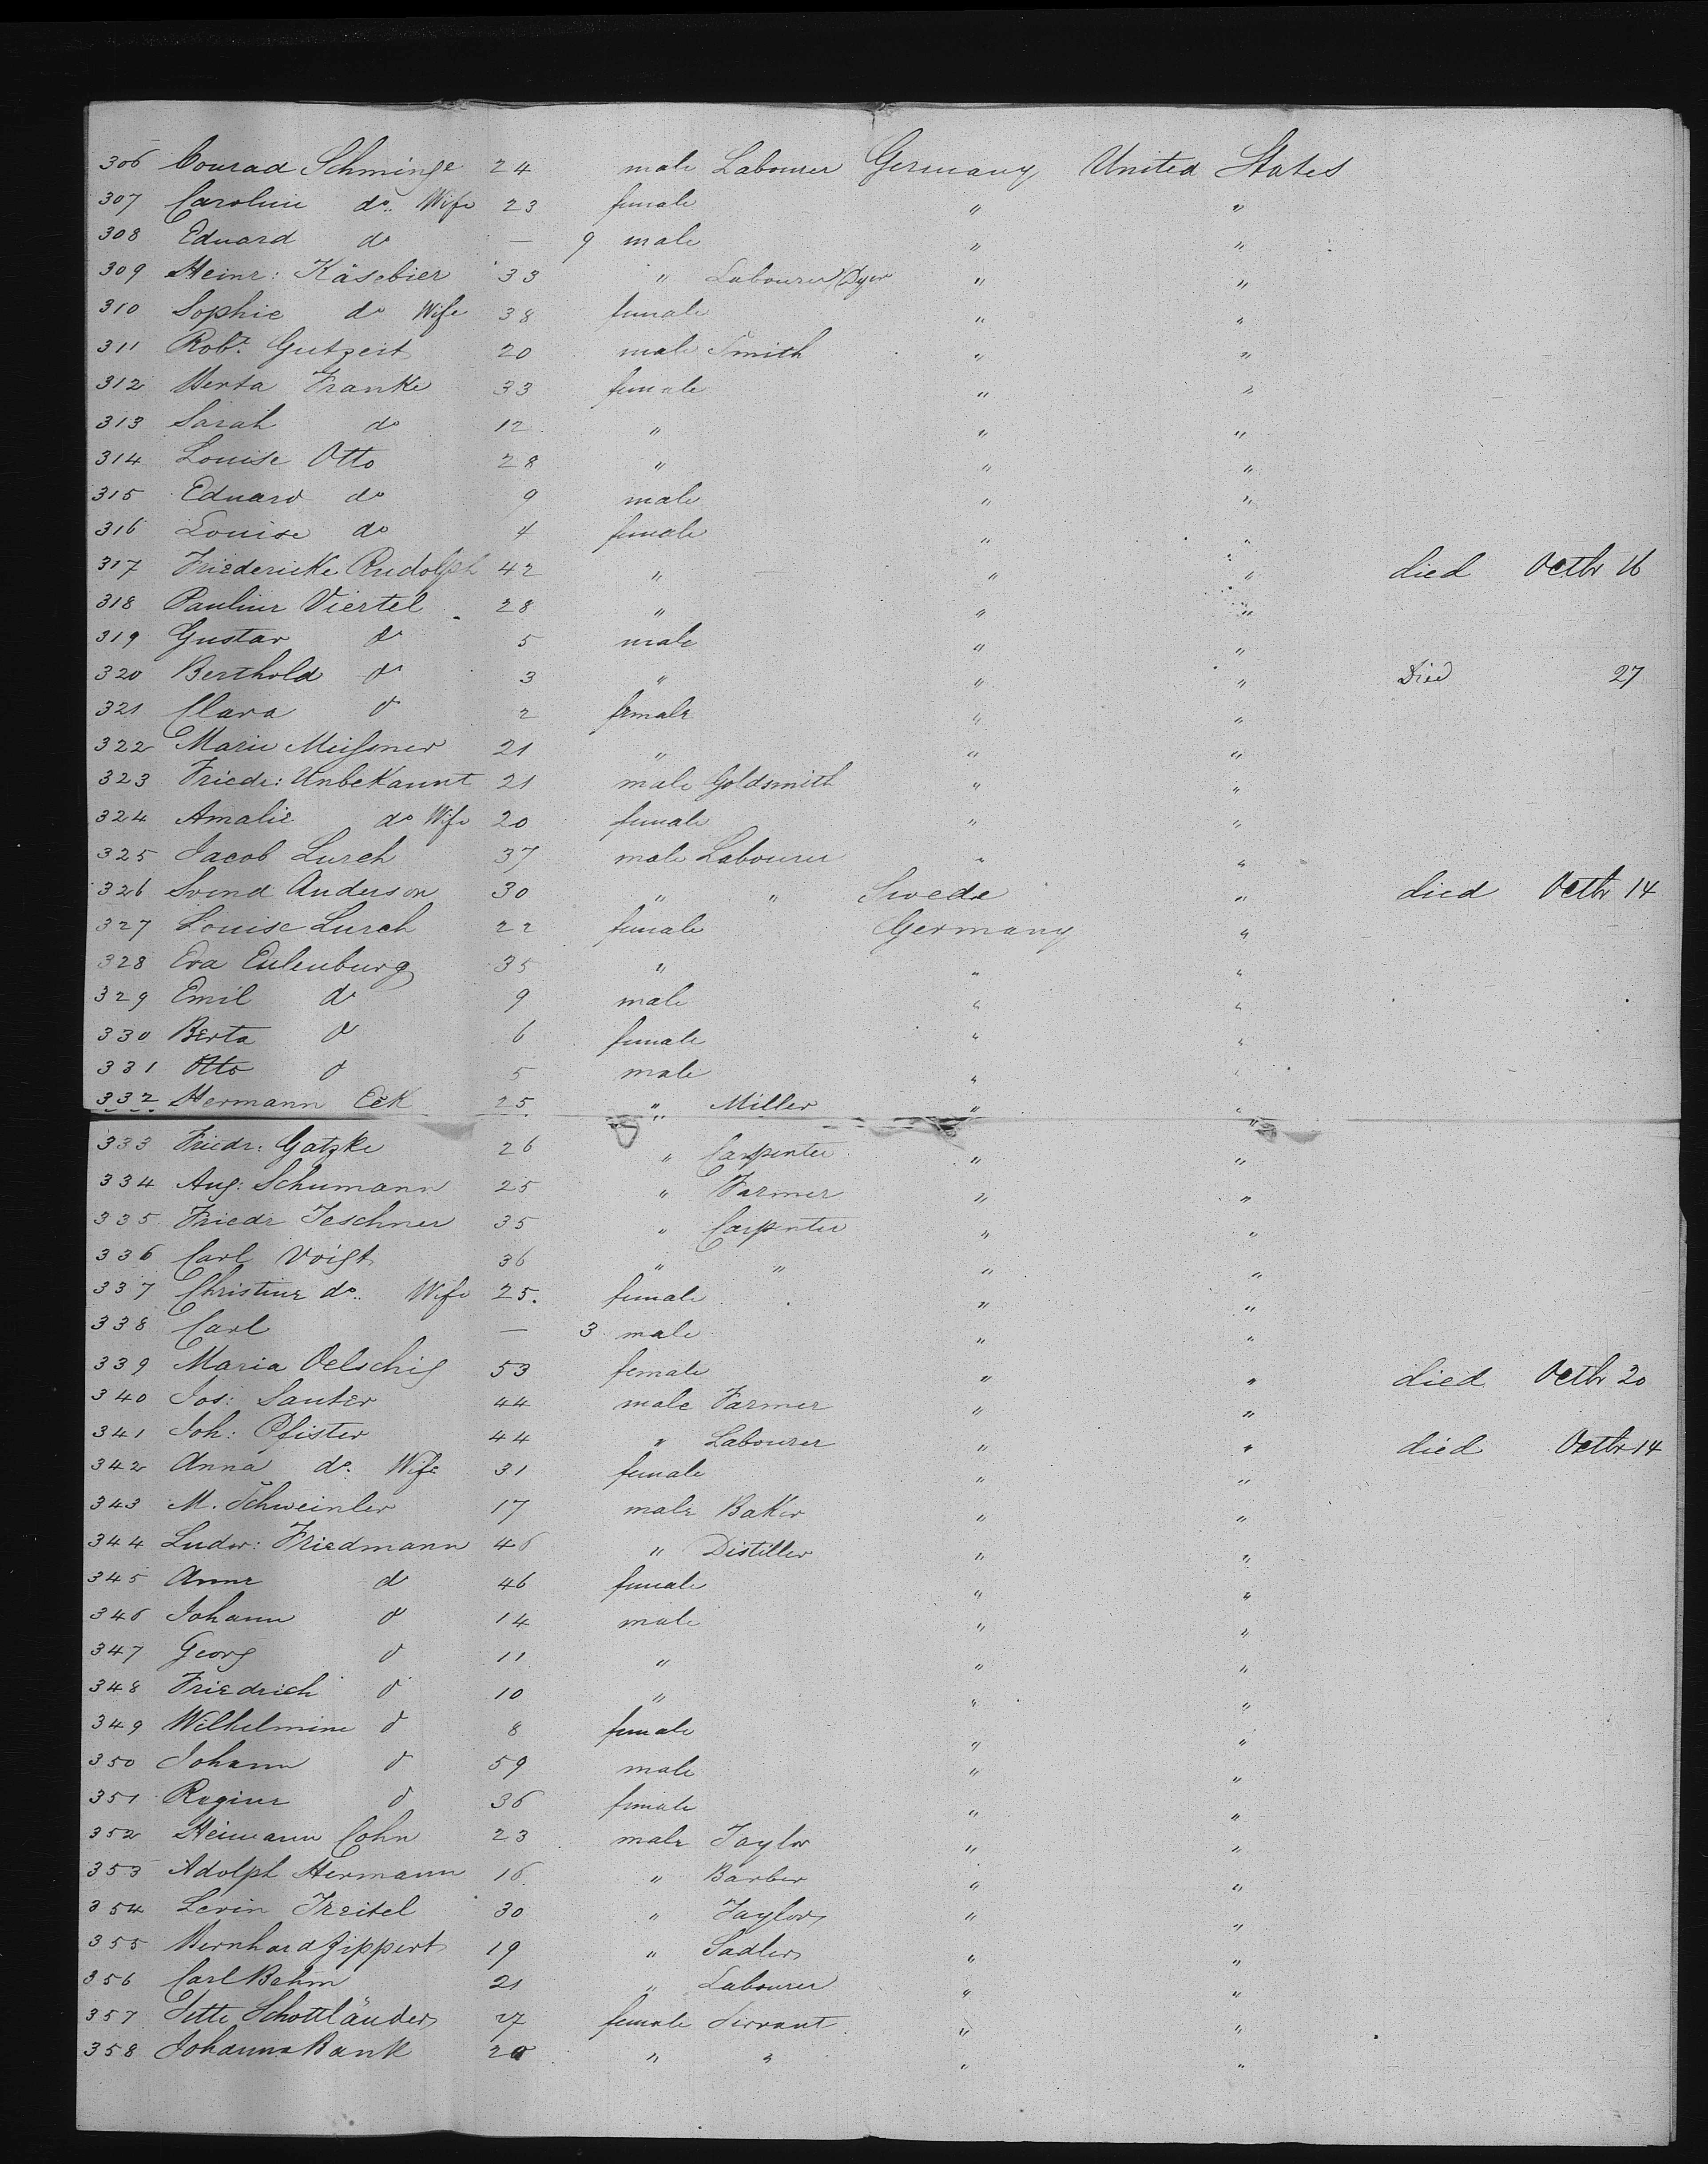 306 Conrad Schminge 24 male Labourer Germany United States
307 Caroline do. Wife 23 female " "
308 Eduard do — 9 male " "
309 Heinr: Käsebier 33 " Labourer/Dyer " "
310 Sophie do Wife 38 female " "
311 Robt. Gutzeit 20 male Smith " "
312 Berta Franke 33 female " "
313 Sarah do 12 " " "
314 Louise Otto 28 " " "
315 Eduard do 9 male " "
316 Louise do 4 female " "
317 Friedericke Rudolph 42 " " " died Octbr 16
318 Pauline Viertel 28 " " "
319 Gustav do 5 male " "
320 Berthold do 3 " " " Died 27
321 Clara do 2 female " "
322 Marie Meißner 21 " " "
323 Friedr: Unbekannt 21 male Goldsmith " "
324 Amalie do Wife 20 female " "
325 Jacob Lurch 37 male Labourer " "
326 Svend Anderson 30 " " Swede " died Octbr 14
327 Louise Lurch 22 female Germany "
328 Eva Eulenburg 35 " " "
329 Emil do 9 male " "
330 Berta do 6 female " "
331 Otto do 5 male " "
332 Hermann Eck 25 " Miller " "
333 Friedr: Gatzke 26 " Carpenter " "
334 Aug: Schumann 25 " Farmer " "
335 Friedr Jeschner 35 " Carpenter " "
336 Carl Voigt 36 " " " "
337 Christine do. Wife 25. female " "
338 Carl — 3 male " "
339 Maria Oelschig 53 female " " died Octbr 20
340 Jos: Sauter 44 male Farmer " "
341 Joh: Pfister 44 " Labourer " " died Octbr 14
342 Anna do. Wife 31 female " "
343 M. Schweinler 17 male Baker " "
344 Ludw: Friedmann 46 " Distiller " "
345 Anne do 46 female " "
346 Johann do 14 male " "
347 Georg do 11 " " "
348 Friedrich do 10 " " "
349 Wilhelmine do 8 female " "
350 Johann do 59 male " "
351 Regine do 36 female " "
352 Heimann Cohn 23 male Taylor " "
353 Adolph Hermann 16 " Barber " "
354 Levin Treitel 30 " Taylor " "
355 Bernhard Zippert 19 " Sadler " "
356 Carl Behm 21 " Labourer " "
357 Jette Schottländer 27 female Servant " "
358 Johanna Bank 20 " " " "